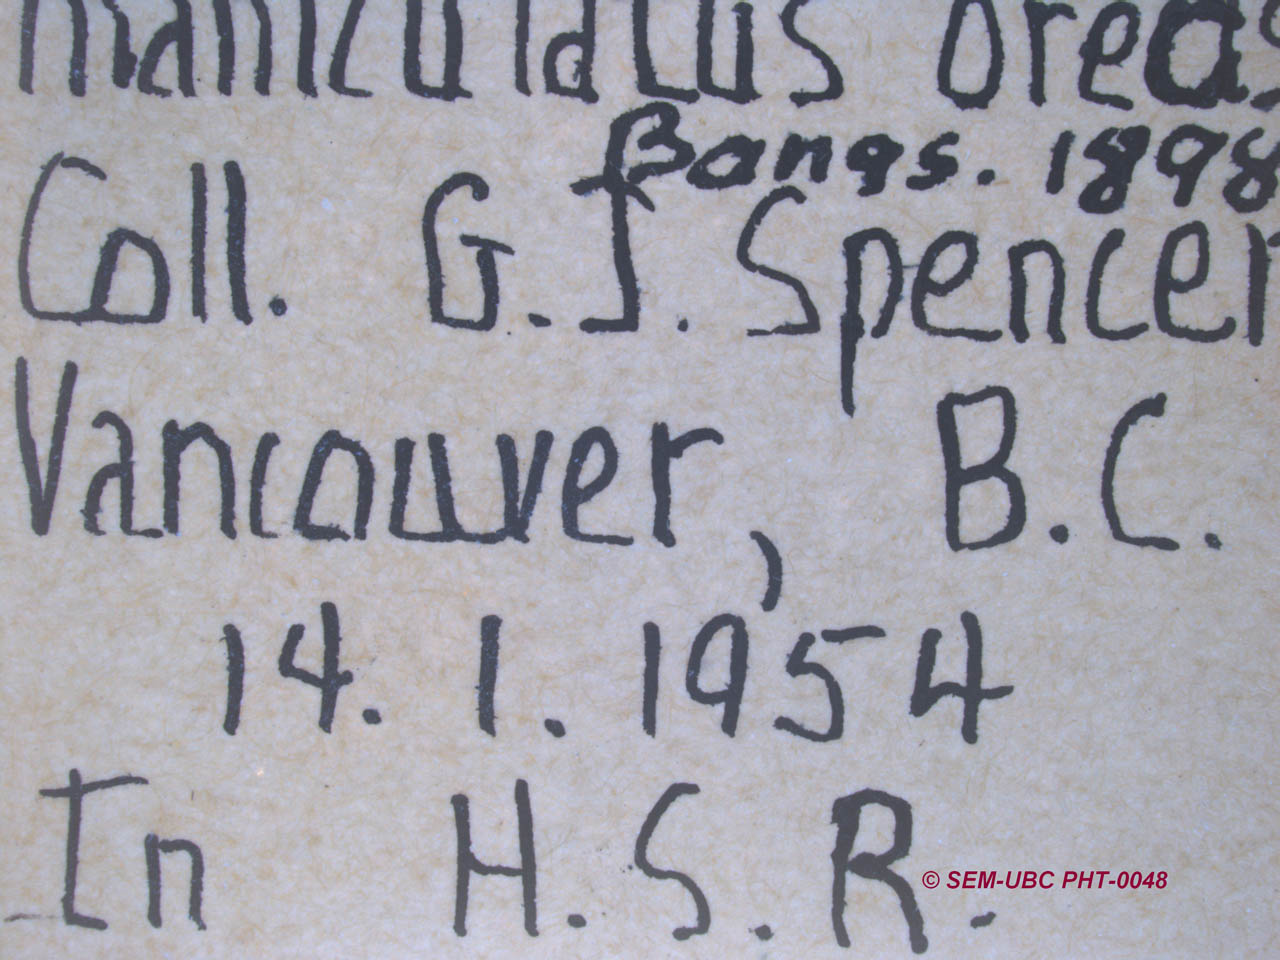 maniculatus oreas
Bangs. 1898
Coll. G.J. Spencer
Vancouver, B.C.
14.1.1954
In H.S.R.
© SEM-UBC PHT-0048